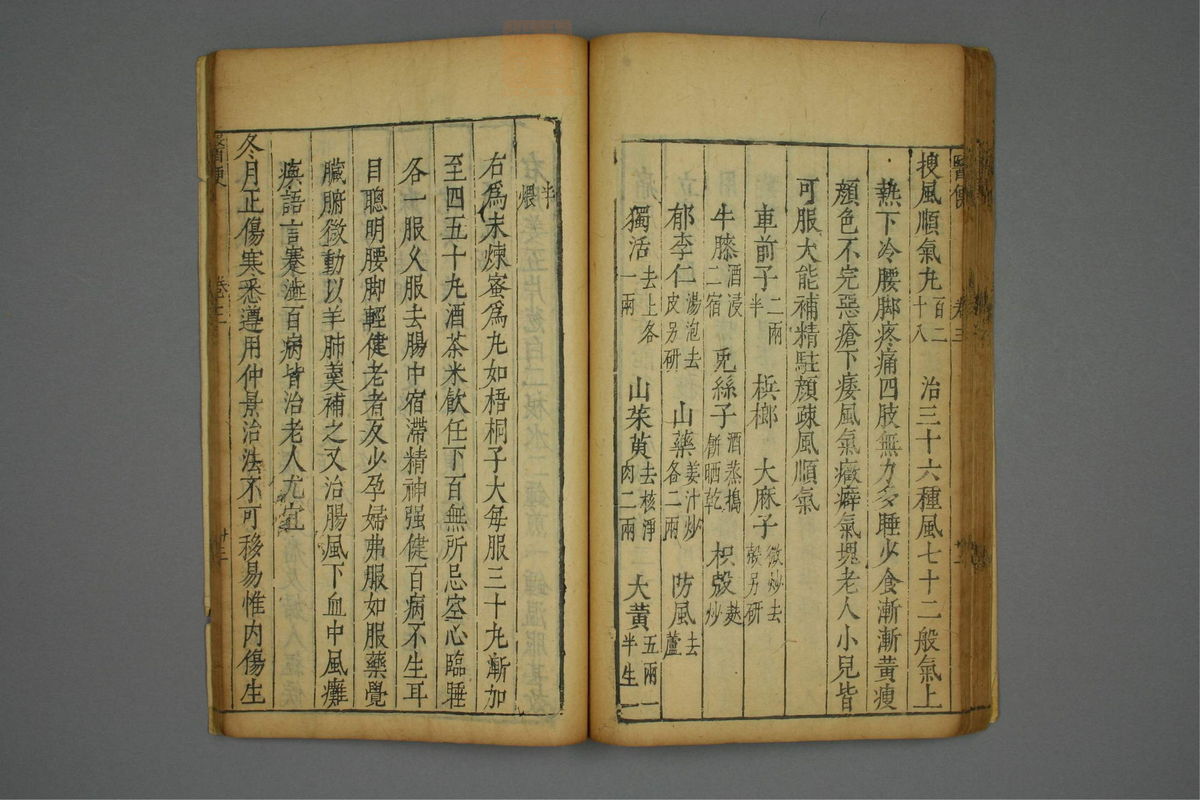 醫便 卷三 廿二
搜風順氣丸百二十八 治三十六種風七十二般氣上
熱下冷腰脚疼痛四肢無力多睡少食漸漸黃瘦
顏色不完惡瘡下痿風氣癥癖氣塊老人小兒皆
可服大能補精駐顏疎風順氣
車前子二兩半 梹榔 大麻子微炒去殼另研
牛膝酒浸二宿 兎絲子酒蒸搗餅晒乾 枳殼麩炒
郁李仁湯泡去皮另研 山藥姜汁炒各二兩 防風去蘆
獨活去上各一兩 山茱萸去核淨肉二兩 大黃五兩半生一
半煨
右爲末煉蜜爲丸如梧桐子大每服三十丸漸加
至四五十丸酒茶米飲任下百無所忌空心臨睡
各一服久服去腸中宿滯精神强健百病不生耳
目聰明腰脚輕健老者及少孕婦弗服如服藥覺
臟腑微動以羊肺羹補之又治腸風下血中風癱
瘓語言蹇澁百病皆治老人尤宜
冬月正傷寒悉遵用仲景治法不可移易惟内傷生
醫便 卷三 廿三